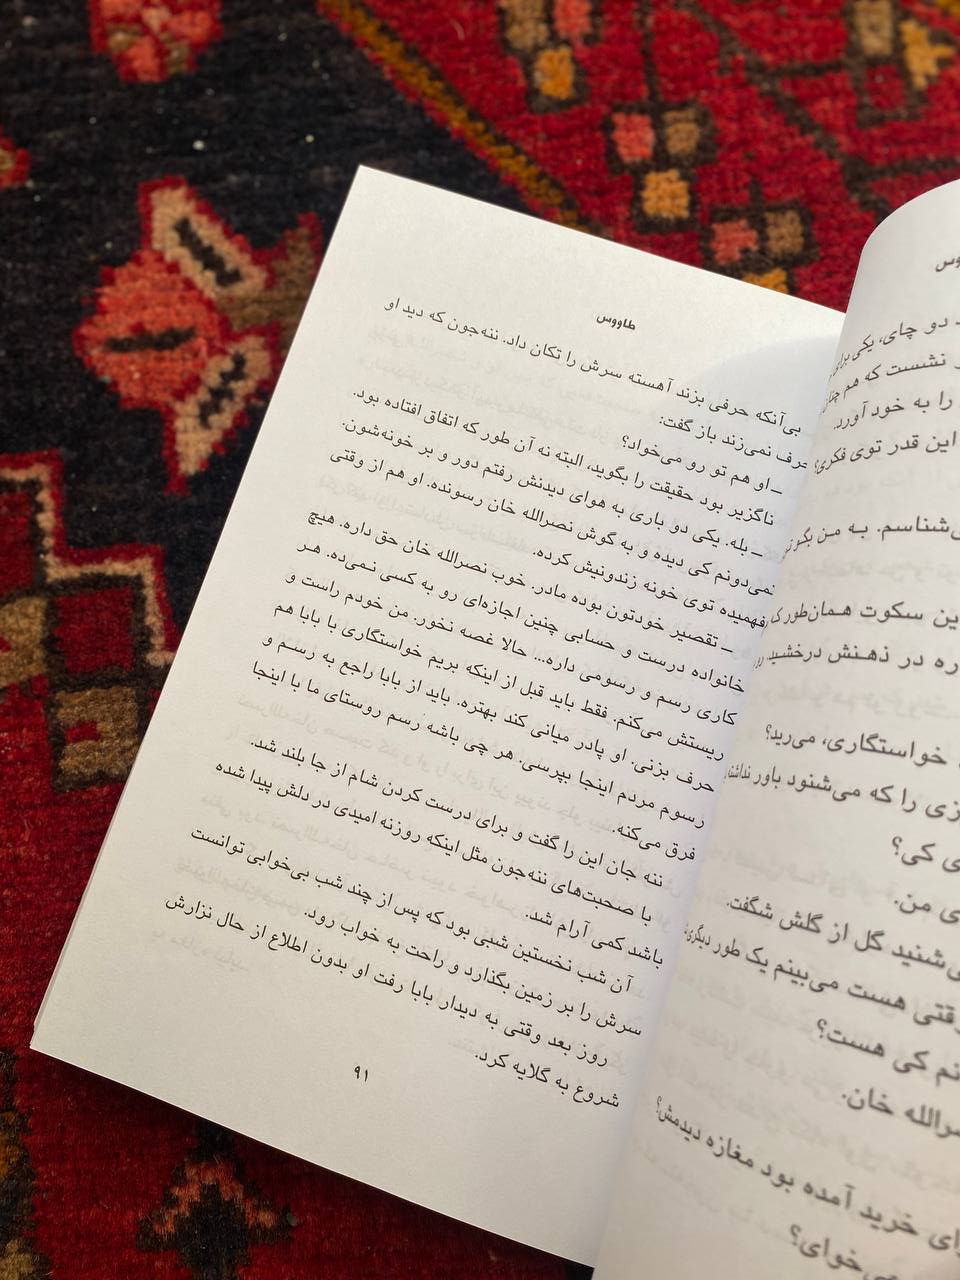 طاووس
بی‌آنکه حرفی بزند آهسته سرش را تکان داد. ننه‌جون که دید او
حرف نمی‌زند باز گفت:
ـ او هم تو رو می‌خواد؟
ناگزیر بود حقیقت را بگوید، البته نه آن طور که اتفاق افتاده بود.
ـ بله. یکی دو باری به هوای دیدنش رفتم دور و بر خونه‌شون.
نمی‌دونم کی دیده و به گوش نصرالله خان رسونده. او هم از وقتی
فهمیده توی خونه زندونیش کرده.
ـ تقصیر خودتون بوده مادر. خوب نصرالله خان حق داره. هیچ
خانواده درست و حسابی چنین اجازه‌ای رو به کسی نمی‌ده. هر
کاری رسم و رسومی داره... حالا غصه نخور. من خودم راست و
ریستش می‌کنم. فقط باید قبل از اینکه بریم خواستگاری با بابا هم
حرف بزنی. او پادر میانی کند بهتره. باید از بابا راجع به رسم و
رسوم مردم اینجا بپرسی. هر چی باشه رسم روستای ما با اینجا
فرق می‌کنه.
ننه جان این را گفت و برای درست کردن شام از جا بلند شد.
با صحبت‌های ننه‌جون مثل اینکه روزنه امیدی در دلش پیدا شده
باشد کمی آرام شد.
آن شب نخستین شبی بود که پس از چند شب بی‌خوابی توانست
سرش را بر زمین بگذارد و راحت به خواب رود.
روز بعد وقتی به دیدار بابا رفت او بدون اطلاع از حال نزارش
شروع به گلایه کرد.
۹۱
دو چای، یکی برای
نشست که هم چنان
را به خود آورد.
این قدر توی فکری؟
‌شناسم. به من بگو
این سکوت همان‌طور که
در ذهنش درخشید.
خواستگاری، می‌رید؟
را که می‌شنود باور نداشت
کی؟
من.
شنید گل از گلش شگفت.
وقتی هست می‌بینم یک طور دیگری
کی هست؟
خان.
خرید آمده بود مغازه دیدمش؟